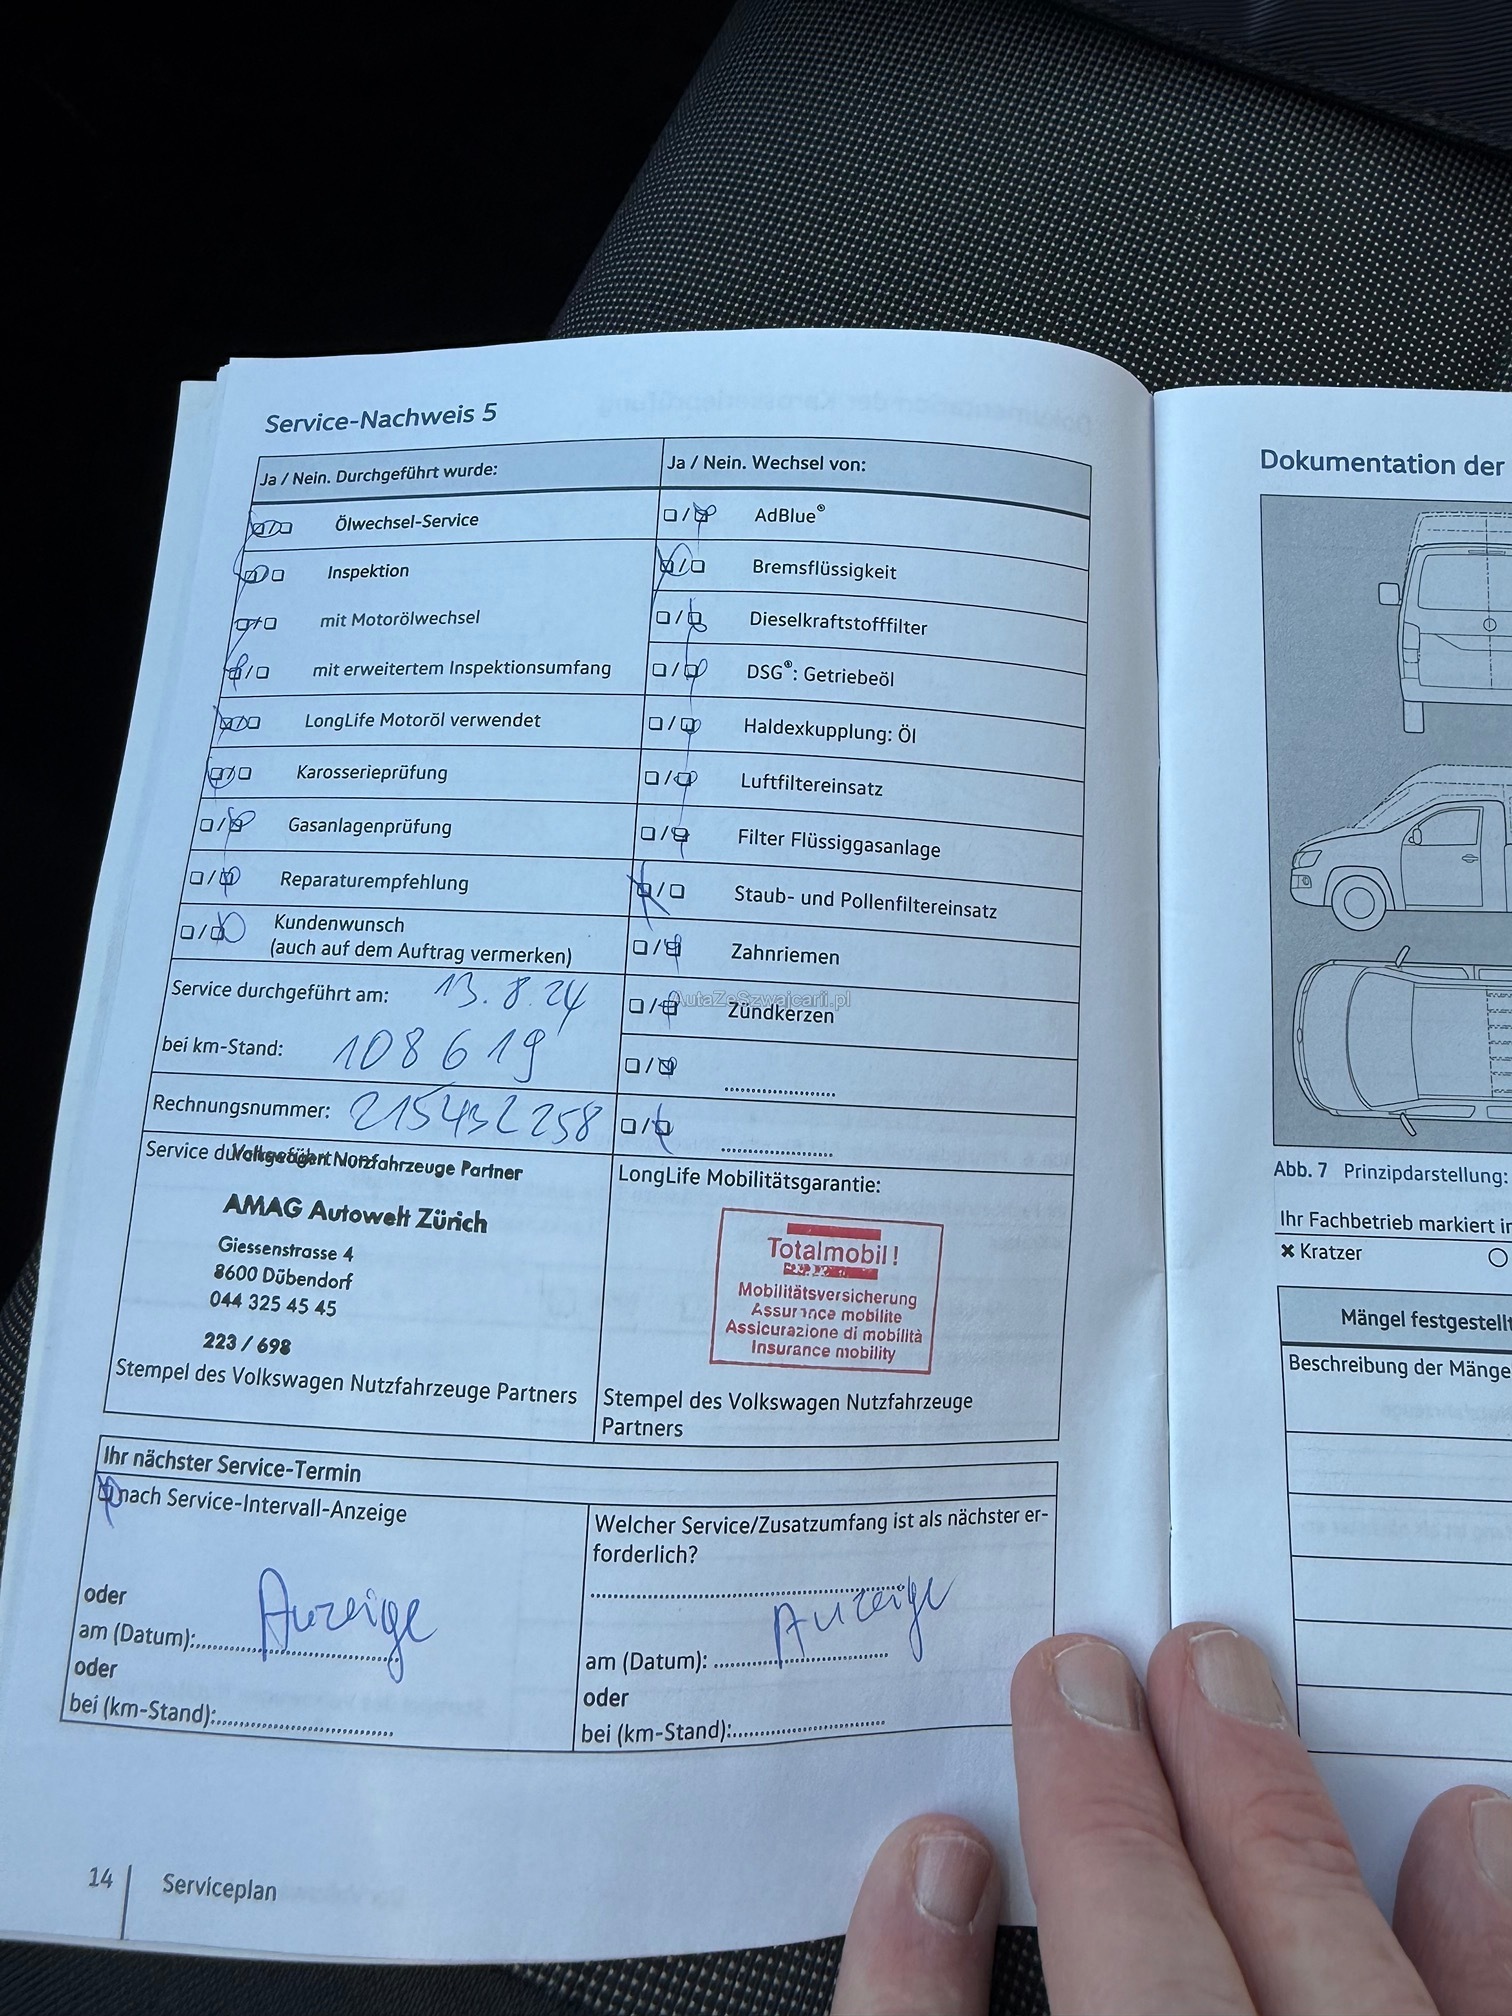 Service-Nachweis 5
Ja / Nein. Durchgeführt wurde:
Ölwechsel-Service
Inspektion
mit Motorölwechsel
mit erweitertem Inspektionsumfang
LongLife Motoröl verwendet
Karosserieprüfung
Gasanlagenprüfung
Reparaturempfehlung
Kundenwunsch
(auch auf dem Auftrag vermerken)
Service durchgeführt am: 13.8.24
bei km-Stand: 108619
Rechnungsnummer: 215432258
Service durchgeführt von:
Volkswagen Nutzfahrzeuge Partner
AMAG Autowelt Zürich
Giessenstrasse 4
8600 Dübendorf
044 325 45 45
223 / 698
Stempel des Volkswagen Nutzfahrzeuge Partners
Ja / Nein. Wechsel von:
AdBlue®
Bremsflüssigkeit
Dieselkraftstofffilter
DSG®: Getriebeöl
Haldexkupplung: Öl
Luftfiltereinsatz
Filter Flüssiggasanlage
Staub- und Pollenfiltereinsatz
Zahnriemen
AutaZeSzwajcarii.pl
Zündkerzen
LongLife Mobilitätsgarantie:
Totalmobil!
Mobilitätsversicherung
Assurance mobilite
Assicurazione di mobilità
Insurance mobility
Stempel des Volkswagen Nutzfahrzeuge
Partners
Ihr nächster Service-Termin
nach Service-Intervall-Anzeige
oder
Anzeige
am (Datum):
oder
bei (km-Stand):
Welcher Service/Zusatzumfang ist als nächster er-
forderlich?
Anzeige
am (Datum):
oder
bei (km-Stand):
14
Serviceplan
Dokumentation der
Abb. 7 Prinzipdarstellung:
Ihr Fachbetrieb markiert
Kratzer
Mängel
Beschreibung der